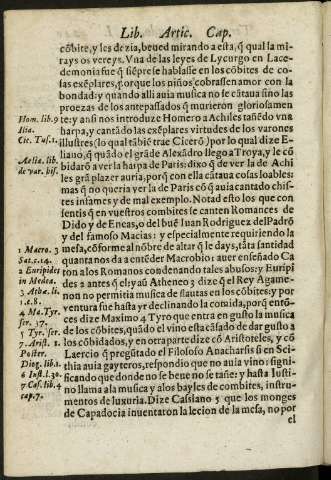 Lib. Artic. Cap.
cõbite, y les dezia, beued mirando a esta, q̃ qual la mi-
rays os vereys. Vna de las leyes de Lycurgo en Lace-
demonia fue q̃ siẽpre se hablasse en los cõbites de co-
sas exẽplares, porque los niños cobrassen amor con la
bondad: y quando alli auia musica no se cãtaua sino las
proezas de los antepassados q̃ murieron gloriosamen
te: y ansi nos introduze Homero a Achiles tañẽdo vna
harpa, y cantãdo las exẽplares virtudes de los varones
illustres (lo qual tãbiẽ trae Cicerõ) por lo qual dize E-
liano, q̃ quãdo el grãde Alexãdro llego a Troya, y le cõ
bidarõ a ver la harpa de Paris: dixo q̃ de ver la de Achi
les grã plazer auria, porq̃ con ella cãtaua cosas loables:
mas q̃ no queria ver la de Paris cõ q̃ auia cantado chis-
tes infames y de mal exemplo. Notad esto los que con
sentis q̃ en vuestros combites se canten Romances de
Dido y de Eneas, o del buẽ Iuan Rodriguez del Padrõ
y del famoso Macias: y especialmente requiriendo la
mesa, cõforme al nõbre de altar q̃ le days, tãta santidad
quanta nos da a entẽder Macrobio: auer enseñado Ca
ton a los Romanos condenando tales abusos: y Euripi
des 2 antes q̃ el: y aũ Atheneo 3 dize q̃ el Rey Agame-
non no permitia musica de flautas en los cõbites: y por
ventura fue hasta yr declinando la comida, porq̃ entõ-
ces dize Maximo 4 Tyro que entra en gusto la musica
de los cõbites, quãdo el vino esta cãsado de dar gusto a
los cõbidados, y en otra parte dize cõ Aristoteles, y cõ
Laercio q̃ pregũtado el Filosofo Anacharsis si en Sci-
thia auia gayteros, respondio que no auia vino: signi-
ficando que donde no se beue no se tañe: y hasta Iusti-
no llama a la musica y a los bayles de combites, instru-
mentos de luxuria. Dize Cassiano 5 que los monges
de Capadocia inuentaron la lecion de la mesa, no por
el
Hom. lib. 9
Ilia.
Cic. Tus. 1.
Aelia. lib.
de var. his.
1 Macro. 3
Sat. c. 14.
2 Euripides
in Medea.
3 Athe. li.
1. c. 8.
4 Ma. Tyr.
ser. 37.
5 Tyr. ser.
7. Arist. 1.
Poster.
Diog. lib. 1.
6 Iust. l. 30.
7 Cas. lib. 4
cap. 7.